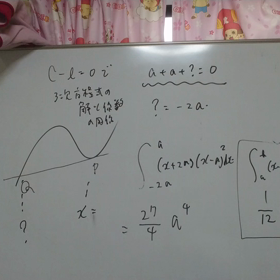 C-l=0で
三次方程式の
解と係数
の関係
a
?
?
x=
a+a+?=0
?=-2a.
∫_{-2a}^{a} (x+2a)(x-a)^2 dx
= 27/4 a^4
∫_a
(x-
1/12